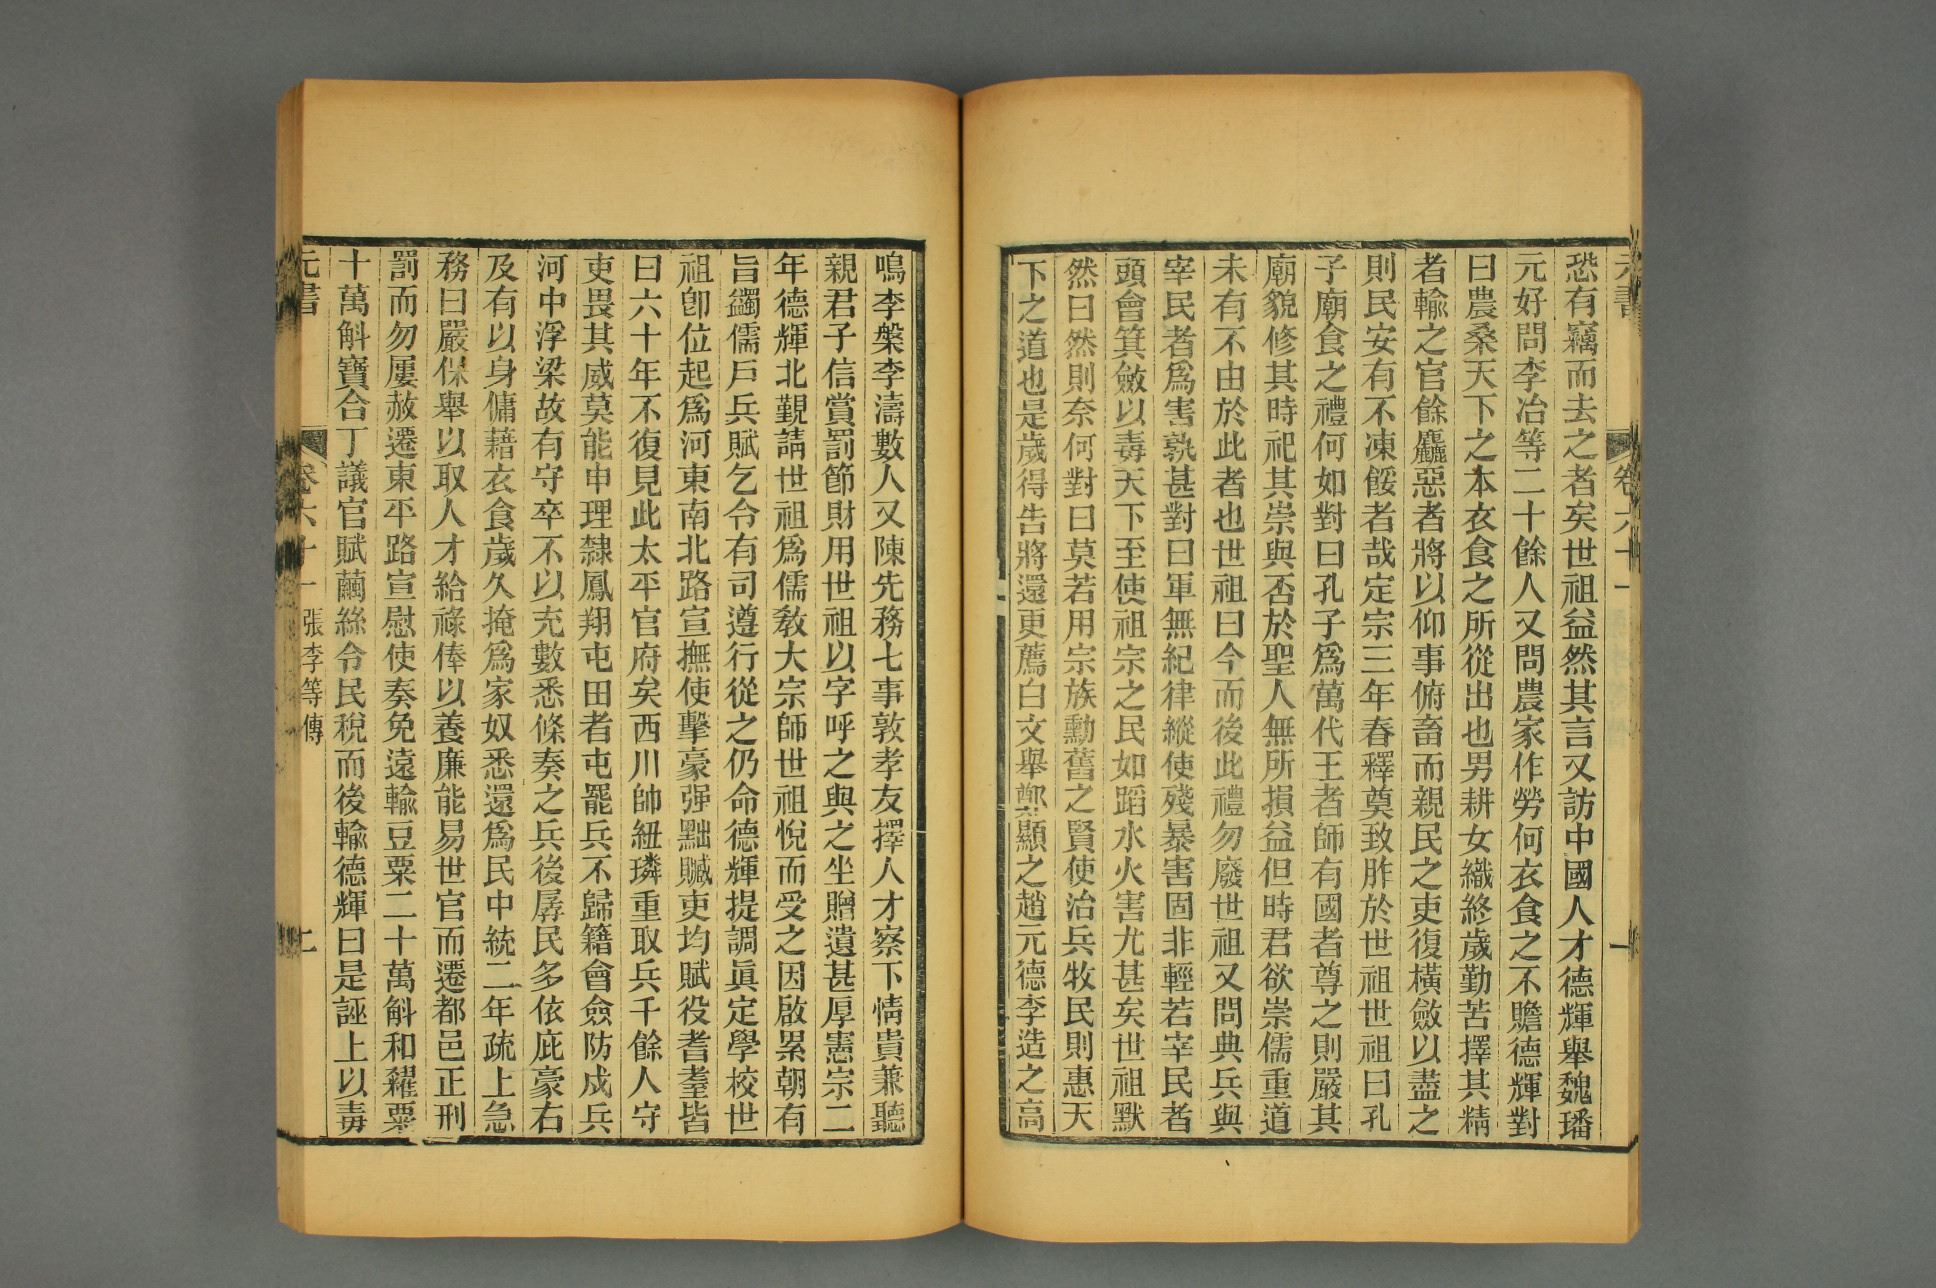 元書 卷六十一 一
恐有竊而去之者矣世祖益然其言又訪中國人才德輝舉魏璠
元好問李冶等二十餘人又問農家作勞何衣食之不贍德輝對
曰農桑天下之本衣食之所從出也男耕女織終歲勤苦擇其精
者輸之官餘麤惡者將以仰事俯畜而親民之吏復橫斂以盡之
則民安有不凍餒者哉定宗三年春釋奠致胙於世祖世祖曰孔
子廟食之禮何如對曰孔子爲萬代王者師有國者尊之則嚴其
廟貌修其時祀其崇與否於聖人無所損益但時君欲崇儒重道
未有不由於此者也世祖曰今而後此禮勿廢世祖又問典兵與
宰民者爲害孰甚對曰軍無紀律縱使殘暴害固非輕若宰民者
頭會箕斂以毒天下至使祖宗之民如蹈水火害尤甚矣世祖默
然曰然則奈何對曰莫若用宗族勳舊之賢使治兵牧民則惠天
下之道也是歲得告將還更薦白文舉鄭顯之趙元德李造之高
鳴李槃李濤數人又陳先務七事敦孝友擇人才察下情貴兼聽
親君子信賞罰節財用世祖以字呼之與之坐贈遺甚厚憲宗二
年德輝北覲請世祖爲儒敎大宗師世祖悅而受之因啟累朝有
旨蠲儒戶兵賦乞令有司遵行從之仍命德輝提調眞定學校世
祖卽位起爲河東南北路宣撫使擊豪强黜贓吏均賦役耆耋皆
曰六十年不復見此太平官府矣西川帥紐璘重取兵千餘人守
吏畏其威莫能申理隸鳳翔屯田者屯罷兵不歸籍會僉防戍兵
河中浮梁故有守卒不以充數悉條奏之兵後孱民多依庇豪右
及有以身傭藉衣食歲久掩爲家奴悉還爲民中統二年疏上急
務曰嚴保舉以取人才給祿俸以養廉能易世官而遷都邑正刑
罰而勿屢赦遷東平路宣慰使奏免遠輸豆粟二十萬斛和糴粟
十萬斛寶合丁議官賦繭絲令民稅而後輸德輝曰是誣上以毒
元書 卷六十一 張李等傳 二